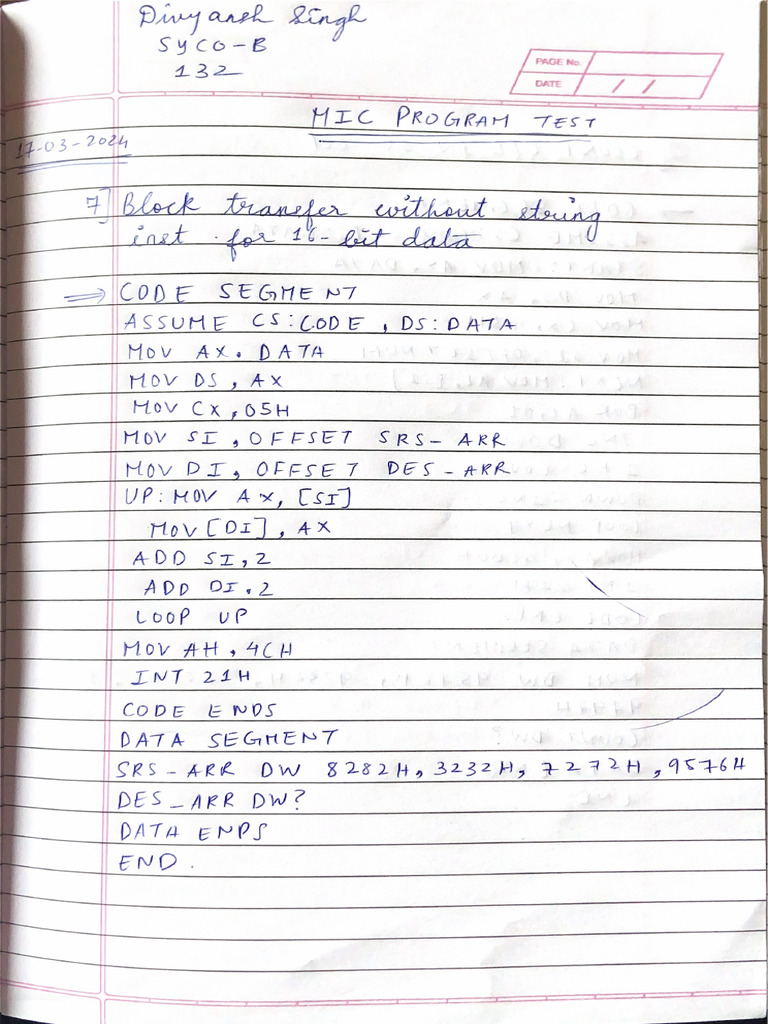 Divyansh Singh
SYCO-B
132
PAGE No.
DATE / /
MIC PROGRAM TEST
17-03-2024
7] Block transfer without string
inst. for 16-bit data
⇒ CODE SEGMENT
ASSUME CS:CODE, DS:DATA
MOV AX, DATA
MOV DS, AX
MOV CX, 05H
MOV SI, OFFSET SRS-ARR
MOV DI, OFFSET DES-ARR
UP: MOV AX, [SI]
MOV [DI], AX
ADD SI, 2
ADD DI, 2
LOOP UP
MOV AH, 4CH
INT 21H
CODE ENDS
DATA SEGMENT
SRS-ARR DW 8282H, 3232H, 7272H, 9576H
DES_ARR DW?
DATA ENDS
END.